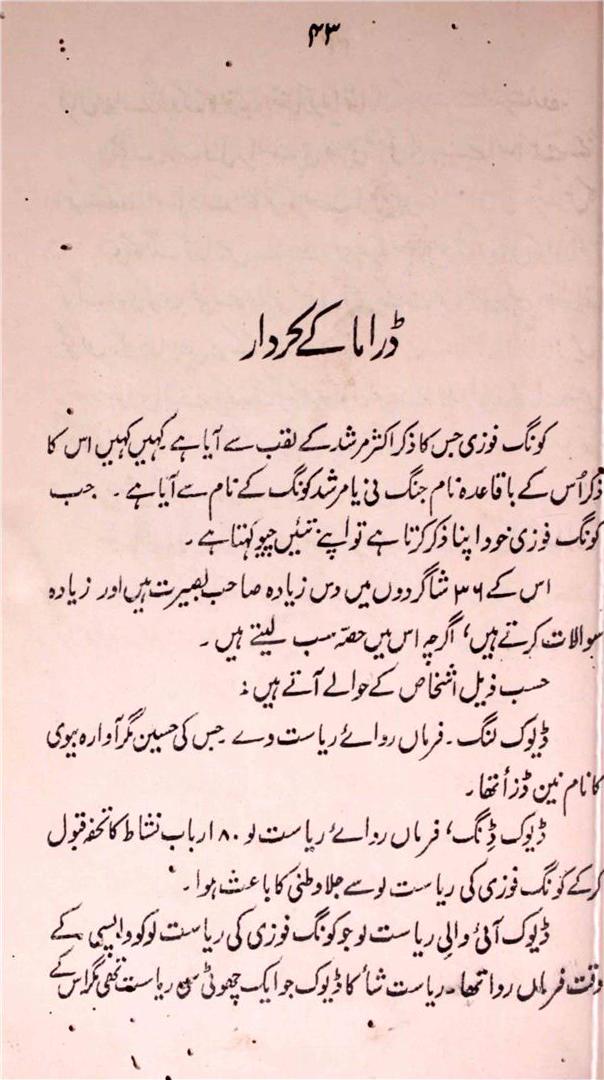 ۴۳
ڈراما کے کردار
کونگ فوزی جس کا ذکر اکثر مرشد کے لقب سے آیا ہے کہیں کہیں اس کا
ذکر اُس کے باقاعدہ نام جنگ نی یا مرشد کونگ کے نام سے آیا ہے ۔ جب
کونگ فوزی خود اپنا ذکر کرتا ہے تو اپنے تئیں چیو کہتا ہے ۔
اس کے ۳۶ شاگردوں میں دس زیادہ صاحب بصیرت ہیں اور زیادہ
سوالات کرتے ہیں، اگرچہ اس میں حصّہ سب لیتے ہیں ۔
حسب ذیل اشخاص کے حوالے آتے ہیں :
ڈیوک لنگ ۔ فرماں روائے ریاست وے ۔ جس کی حسین مگر آوارہ بیوی
کا نام نین ڈزأ تھا ۔
ڈیوک ڈِنگ، فرماں روائے ریاست لو ۸۰ ارباب نشاط کا تحفہ قبول
کر کے کونگ فوزی کی ریاست لو سے جلاوطنی کا باعث ہوا ۔
ڈیوک آئی والیِ ریاست لو جو کونگ فوزی کی ریاست لو کو واپسی کے
وقت فرماں روا تھا ۔ ریاست شأ کا ڈیوک جو ایک چھوٹی سی ریاست تھی مگر اس کے